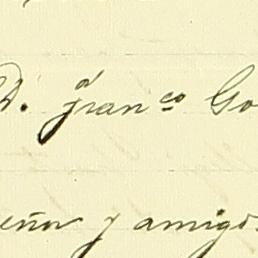 D. Franco Go
eñor y amigo